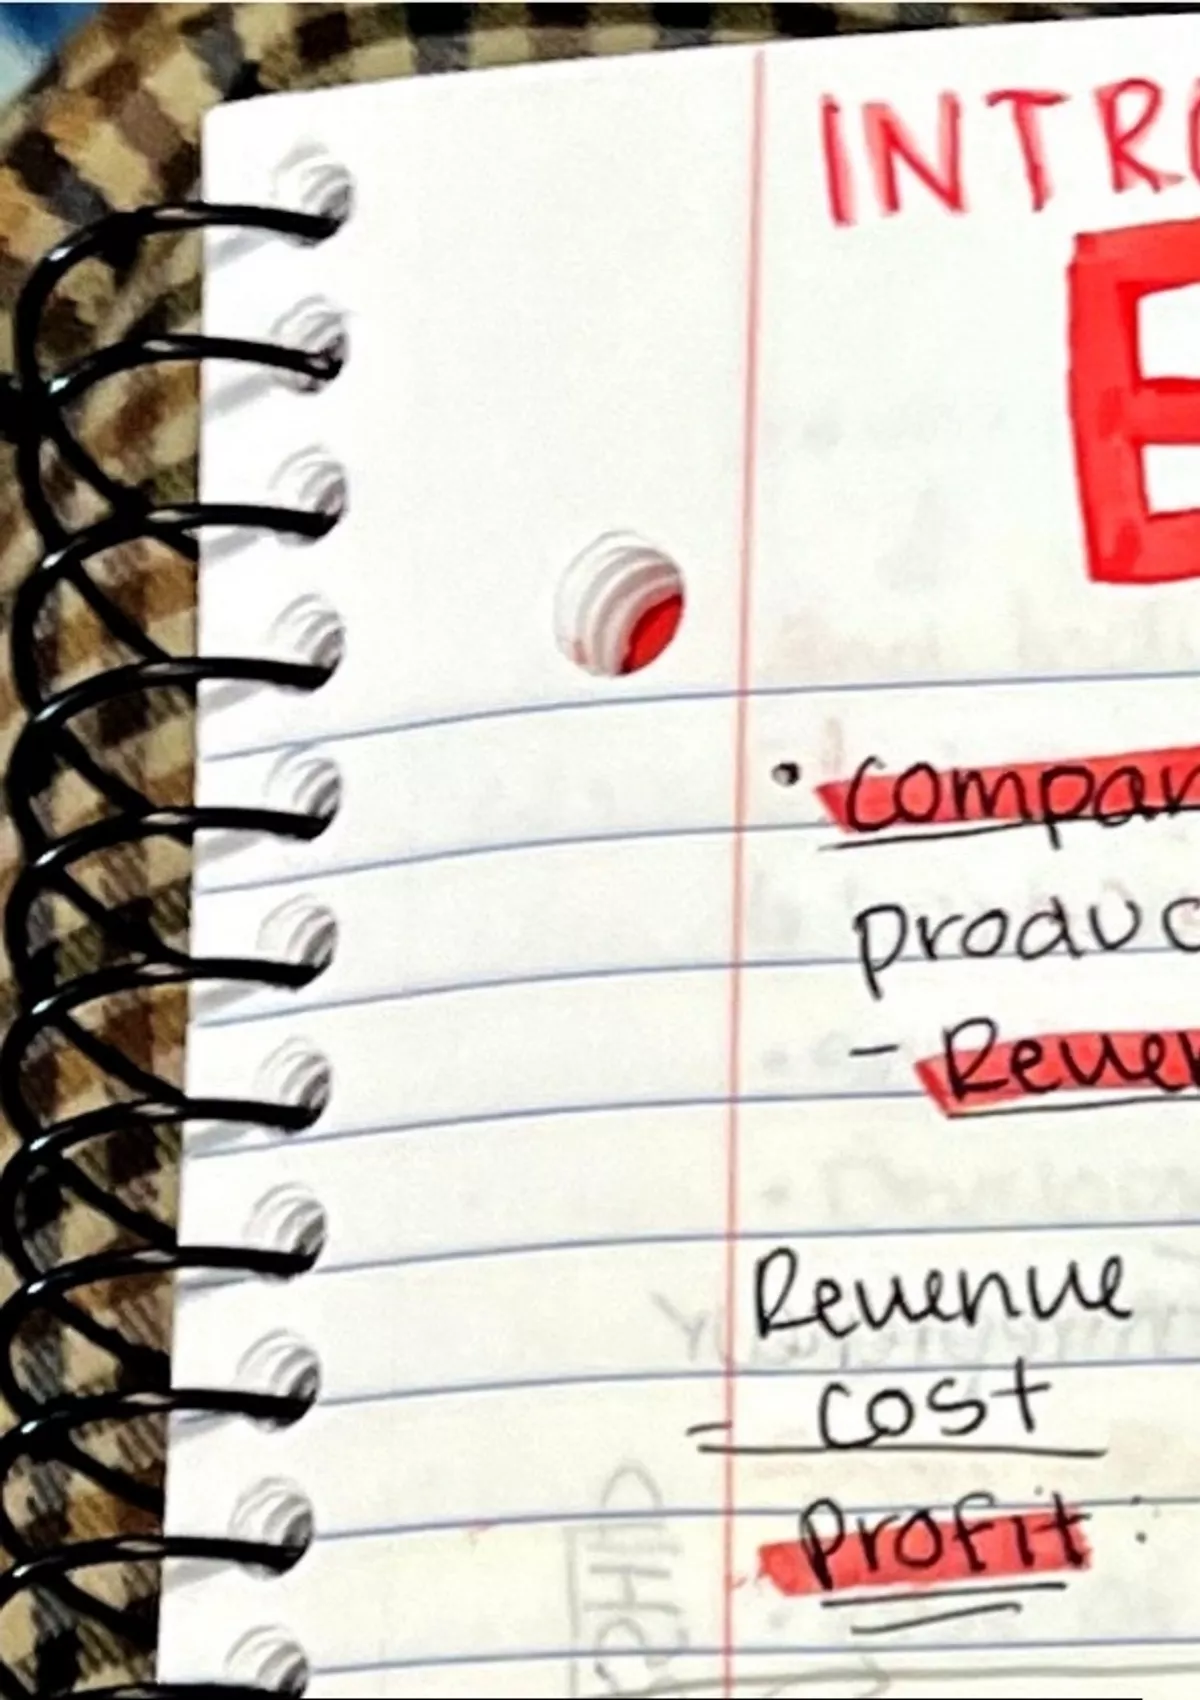 INTRO
E
• compan
produc
- Reven
Revenue
- cost
profit :